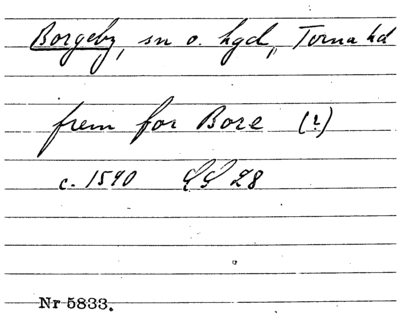 Borgeby, sn o. hgd, Torna hd
frem for Bore (?)
c. 1590 LG 28
Nr 5833.